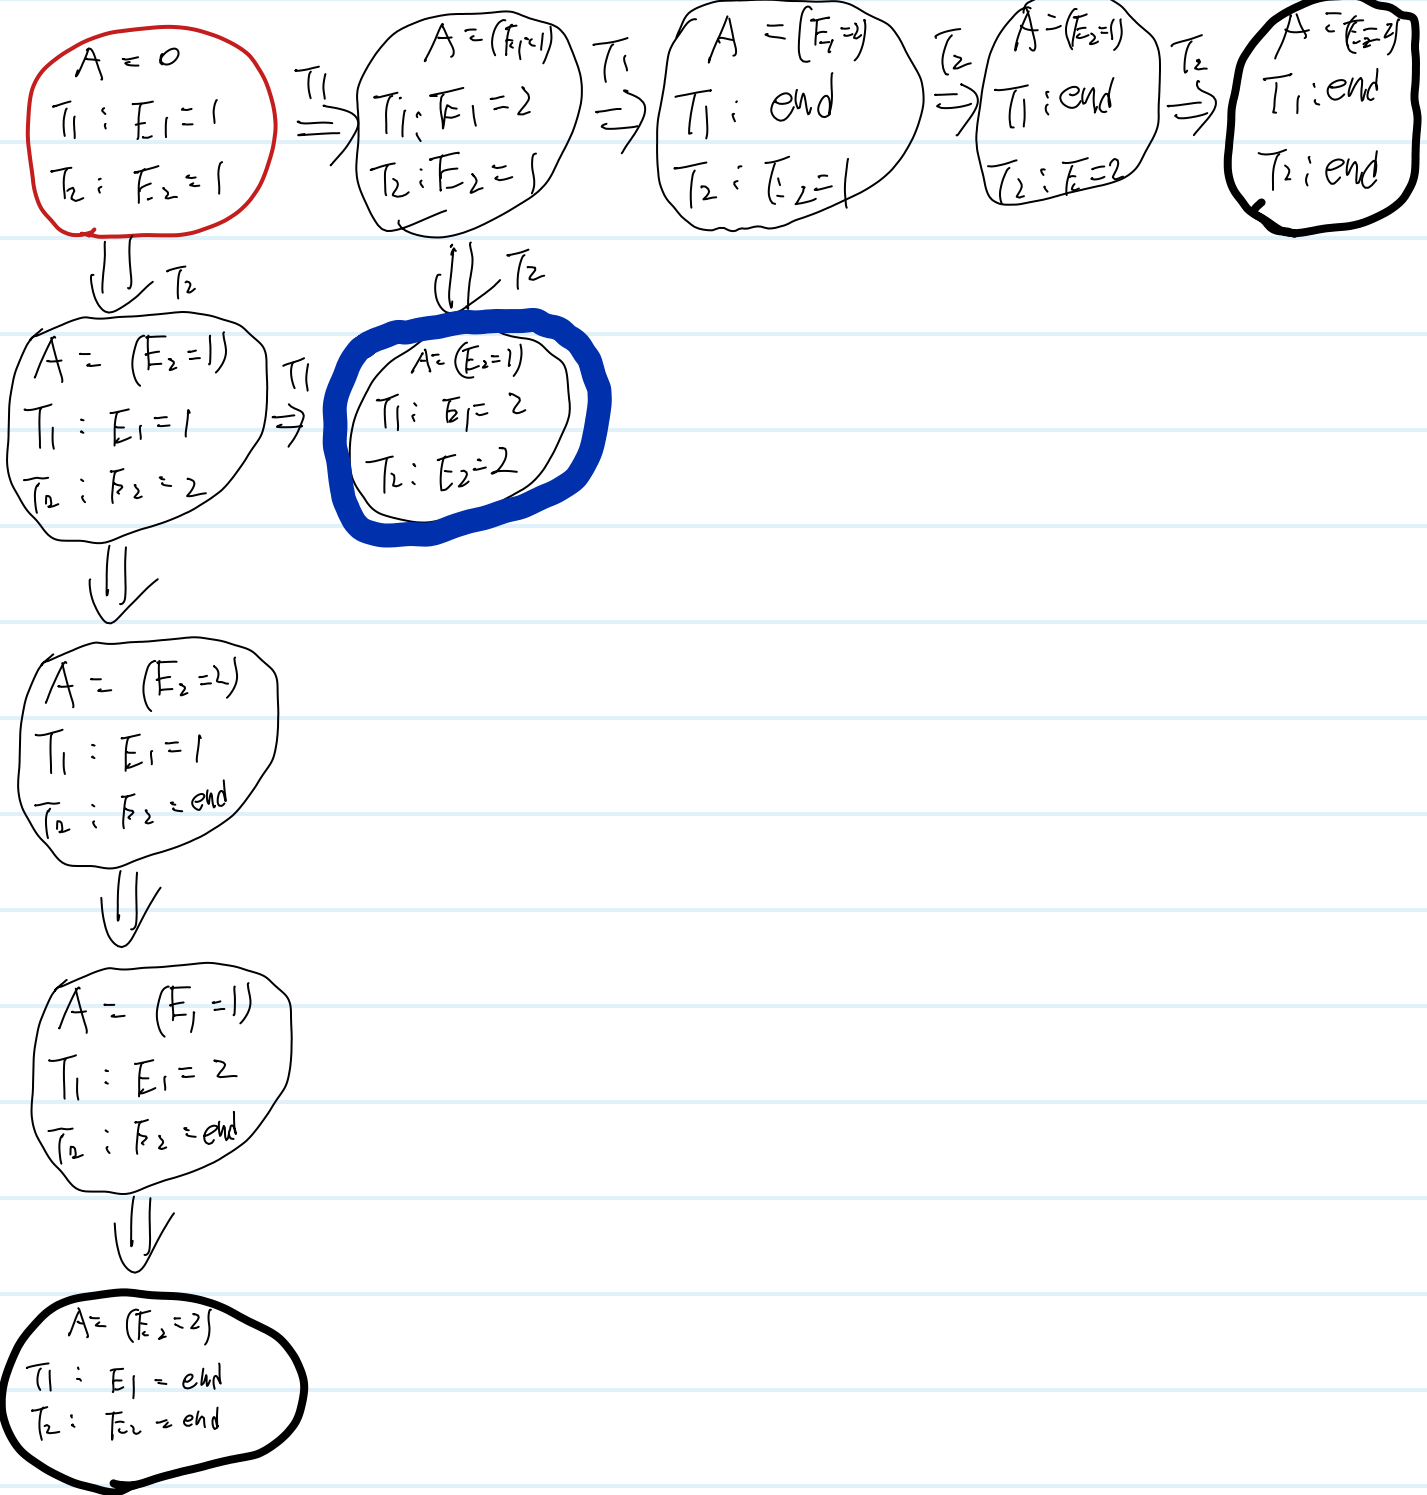 A = 0
T1 : E1 = 1
T2 : E2 = 1
T1
A = (E1=1)
T1 : E1 = 2
T2 : E2 = 1
T1
A = (E1=2)
T1 : end
T2 : E2=1
T2
A=(E2=1)
T1 : end
T2 : E=2
T2
A = (E2=2)
T1 : end
T2 : end
T2
T2
A = (E2=1)
T1 : E1=1
T2 : E2 = 2
T1
A= (E2=1)
T1 : E1= 2
T2 : E2=2
A = (E2=2)
T1 : E1=1
T2 : E2 = end
A = (E1=1)
T1 : E1= 2
T2 : E2 = end
A= (E2=2)
T1 : E1 = end
T2 : E2 = end